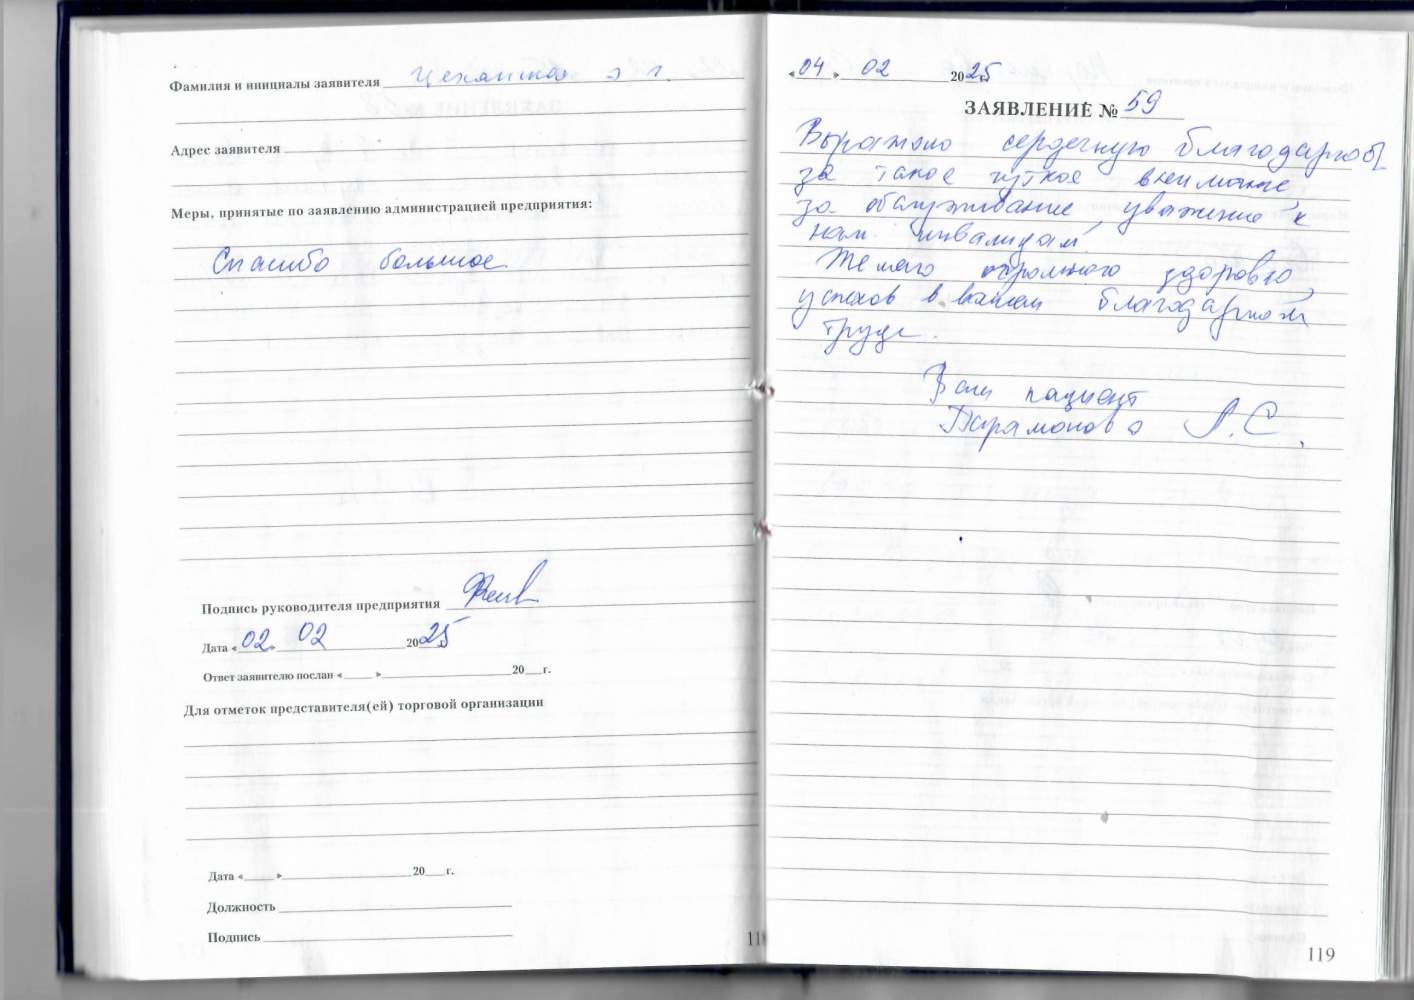 Фамилия и инициалы заявителя
Адрес заявителя
Меры, принятые по заявлению администрацией предприятия:
Спасибо большое
Подпись руководителя предприятия
Дата «02» 02 2025
Ответ заявителю послан «____» ____ 20__г.
Для отметок представителя(ей) торговой организации
Дата «____» ____ 20__г.
Должность
Подпись
118
«04» 02 2025
ЗАЯВЛЕНИЕ № 59
Выражаю сердечную благодарность
за такое чуткое внимание,
за обслуживание, уважение к
нам инвалидам
Желаю огромного здоровья,
успехов в вашем благодарном
труде.
Ваш пациент
Парамонова А.С.
119